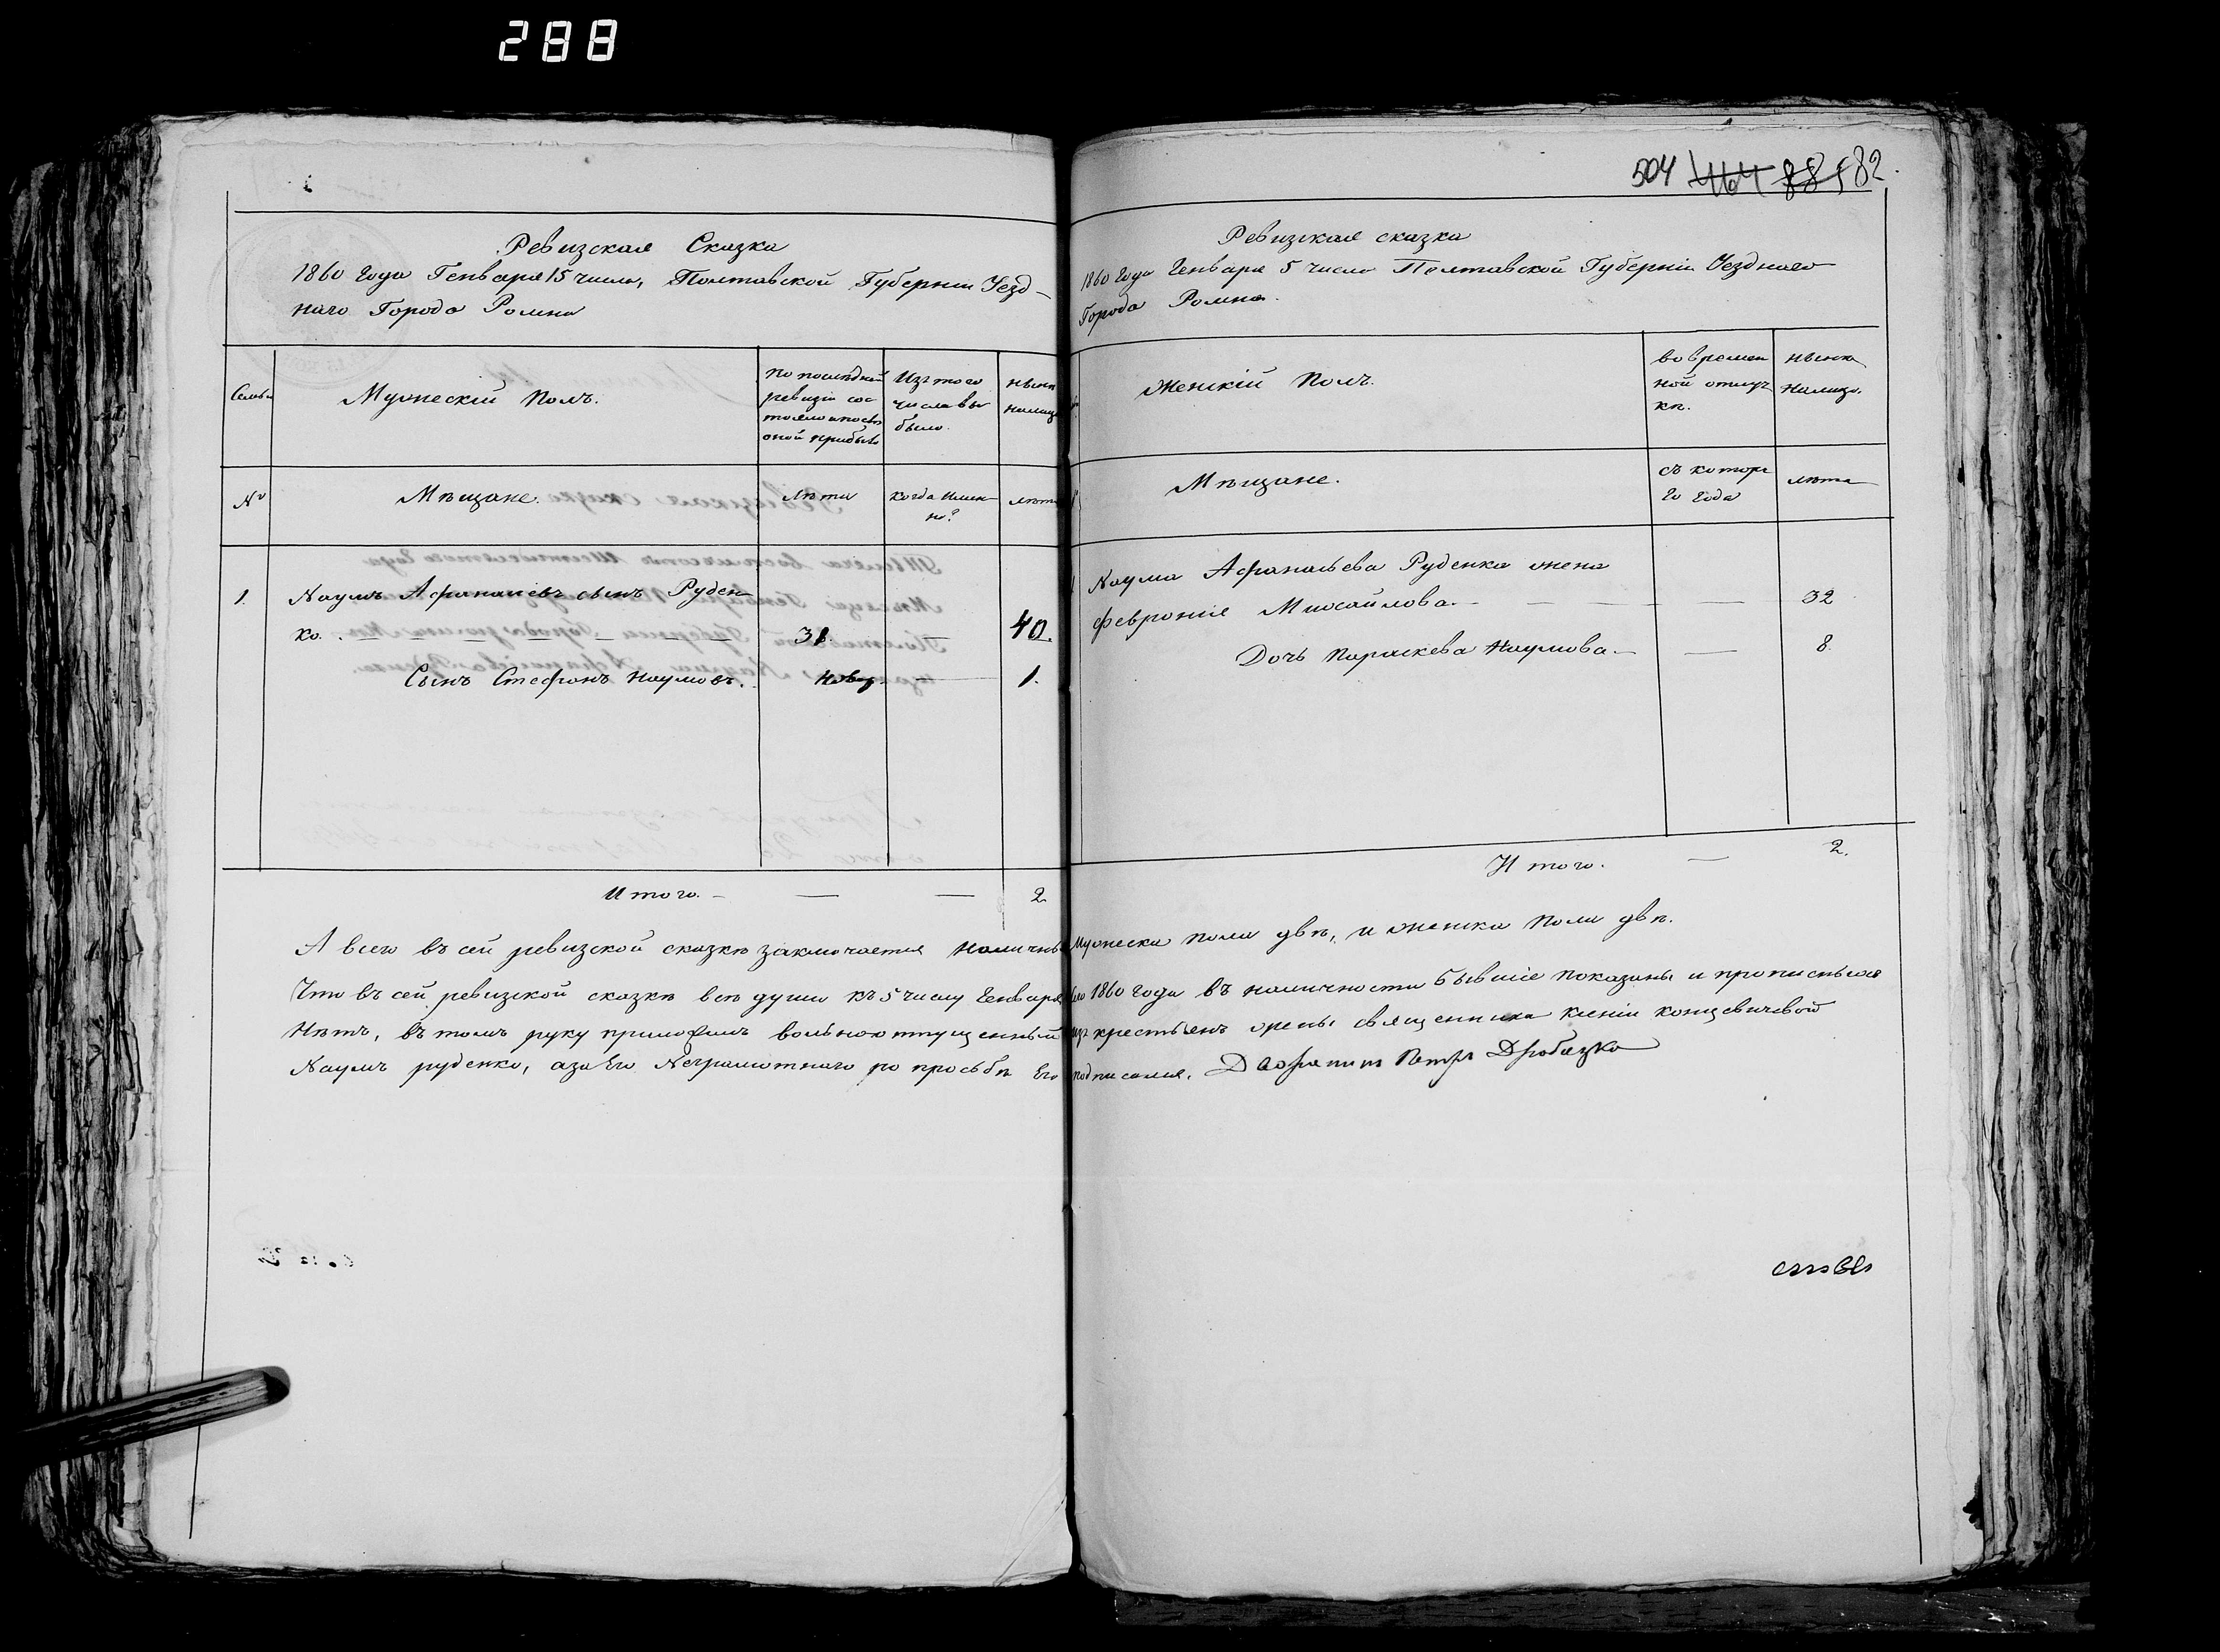 288
504 464 88 582.
Ревизская Сказка
1860 года Генваря 15 числа, Полтавской Губернии Уезд-
наго Города Ромна
Семьи
Мужескій Полъ.
По последней
ревизіи сос-
тояло и после
оной прибыло
Изъ того
числа вы
было.
ныне
налицо
№
Мѣщане.
лѣта
когда имен-
но?
лѣта
1. Наумъ Афанасіевъ сынъ Руден-
ко. 31. — 40.
Сынъ Стефанъ Наумовъ. новор. — 1.
Итого. — — — 2
Ревизская сказка
1860 года Генваря 5 число Полтавской Губерніи Уезднаго
Города Ромна.
Женскій Полъ.
во времен
ной отлуч
кѣ.
ныне
налицо.
Мѣщане.
съ котора
го года
лѣта
Наума Афанасьева Руденка жена
Февронія Михайлова. — — — 32
Дочь Параскева Наумова. — — 8.
Итого. — 2.
А всего въ сей ревизской сказкѣ заключается наличны Мужеска пола двѣ, и женска пола двѣ.
Что въ сей ревизской сказкѣ всѣ души къ 5 числу Генваря 1860 года въ наличности бывшіе показаны и прописныхъ
Нѣтъ, въ томъ руку приложилъ вольноотпущенный изъ крестьянъ священника Ксеніи Концевичевой
Наумъ руденко, а за Его Неграмотнаго по прозьбѣ Его подписался. Дворянин Петръ Дробязко